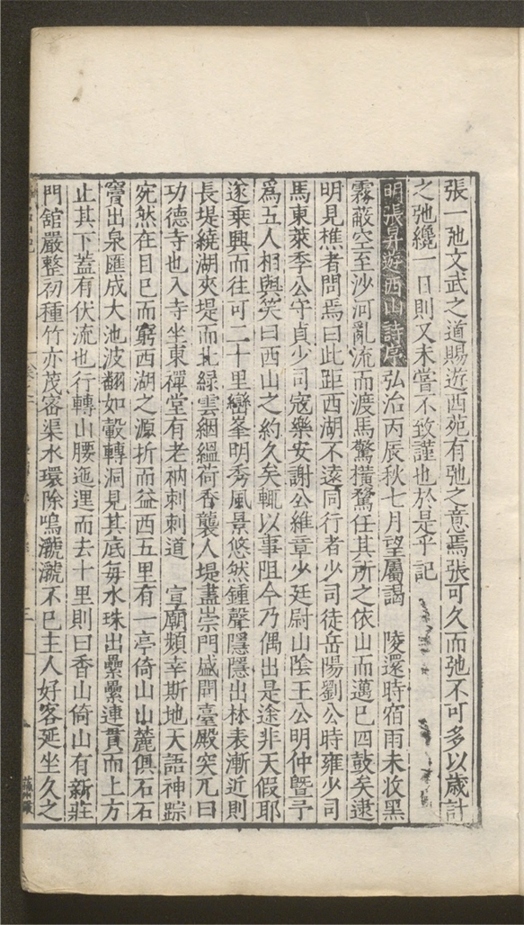 張一弛文武之道賜遊西苑有弛之意焉張可久而弛不可多以歲計
之弛纔一日則又未嘗不致謹也於是乎記
明張昇遊西山詩序弘治丙辰秋七月望屬謁 陵還時宿雨未收黑
霧蔽空至沙河亂流而渡馬驚橫騖任其所之依山而邁已四鼓矣逮
明見樵者問焉曰此距西湖不遠同行者少司徒岳陽劉公時雍少司
馬東萊季公守貞少司寇樂安謝公維章少廷尉山陰王公明仲暨予
爲五人相與笑曰西山之約久矣輒以事阻今乃偶出是途非天假耶
遂乘興而往可二十里巒峯明秀風景悠然鍾聲隱隱出林表漸近則
長堤繞湖夾堤而北綠雲絪縕荷香襲人堤盡崇門盛開臺殿突兀曰
功德寺也入寺坐東禪堂有老衲刺刺道 宣廟頻幸斯地天語神踪
宛然在目已而窮西湖之源折而益西五里有一亭倚山山麓俱石石
竇出泉匯成大池波翻如轂轉洞見其底每水珠出纍纍連貫而上方
止其下蓋有伏流也行轉山腰迤邐而去十里則曰香山倚山有新莊
門舘嚴整初種竹亦茂密渠水環除嗚㶁㶁不已主人好客延坐久之